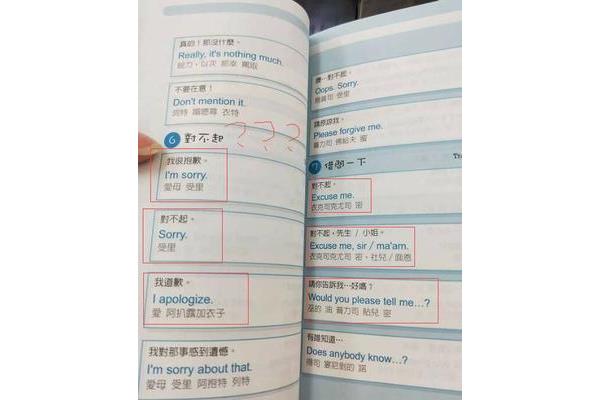 真的！那沒什麼。
Really, it's nothing much.
不要在意！
Don't mention it.
???
6 對不起
我很抱歉。
I'm sorry.
愛母 受里
對不起。
Sorry.
受里
我道歉。
I apologize.
愛 阿扒露加衣子
我對那事感到遺憾。
I'm sorry about that.
愛母 受里 阿抱特 列特
噢…對不起。
Oops. Sorry.
請原諒我。
Please forgive me.
普力司 佛給夫 密
7 借問一下
對不起。
Excuse me.
衣克司克尤司 密
對不起，先生 / 小姐。
Excuse me, sir / ma'am.
衣克司克尤司 密，社兒 / 麻恩
請你告訴我…好嗎？
Would you please tell me…?
巫的 油 普力司 貼兒 密
有誰知道…
Does anybody know…?